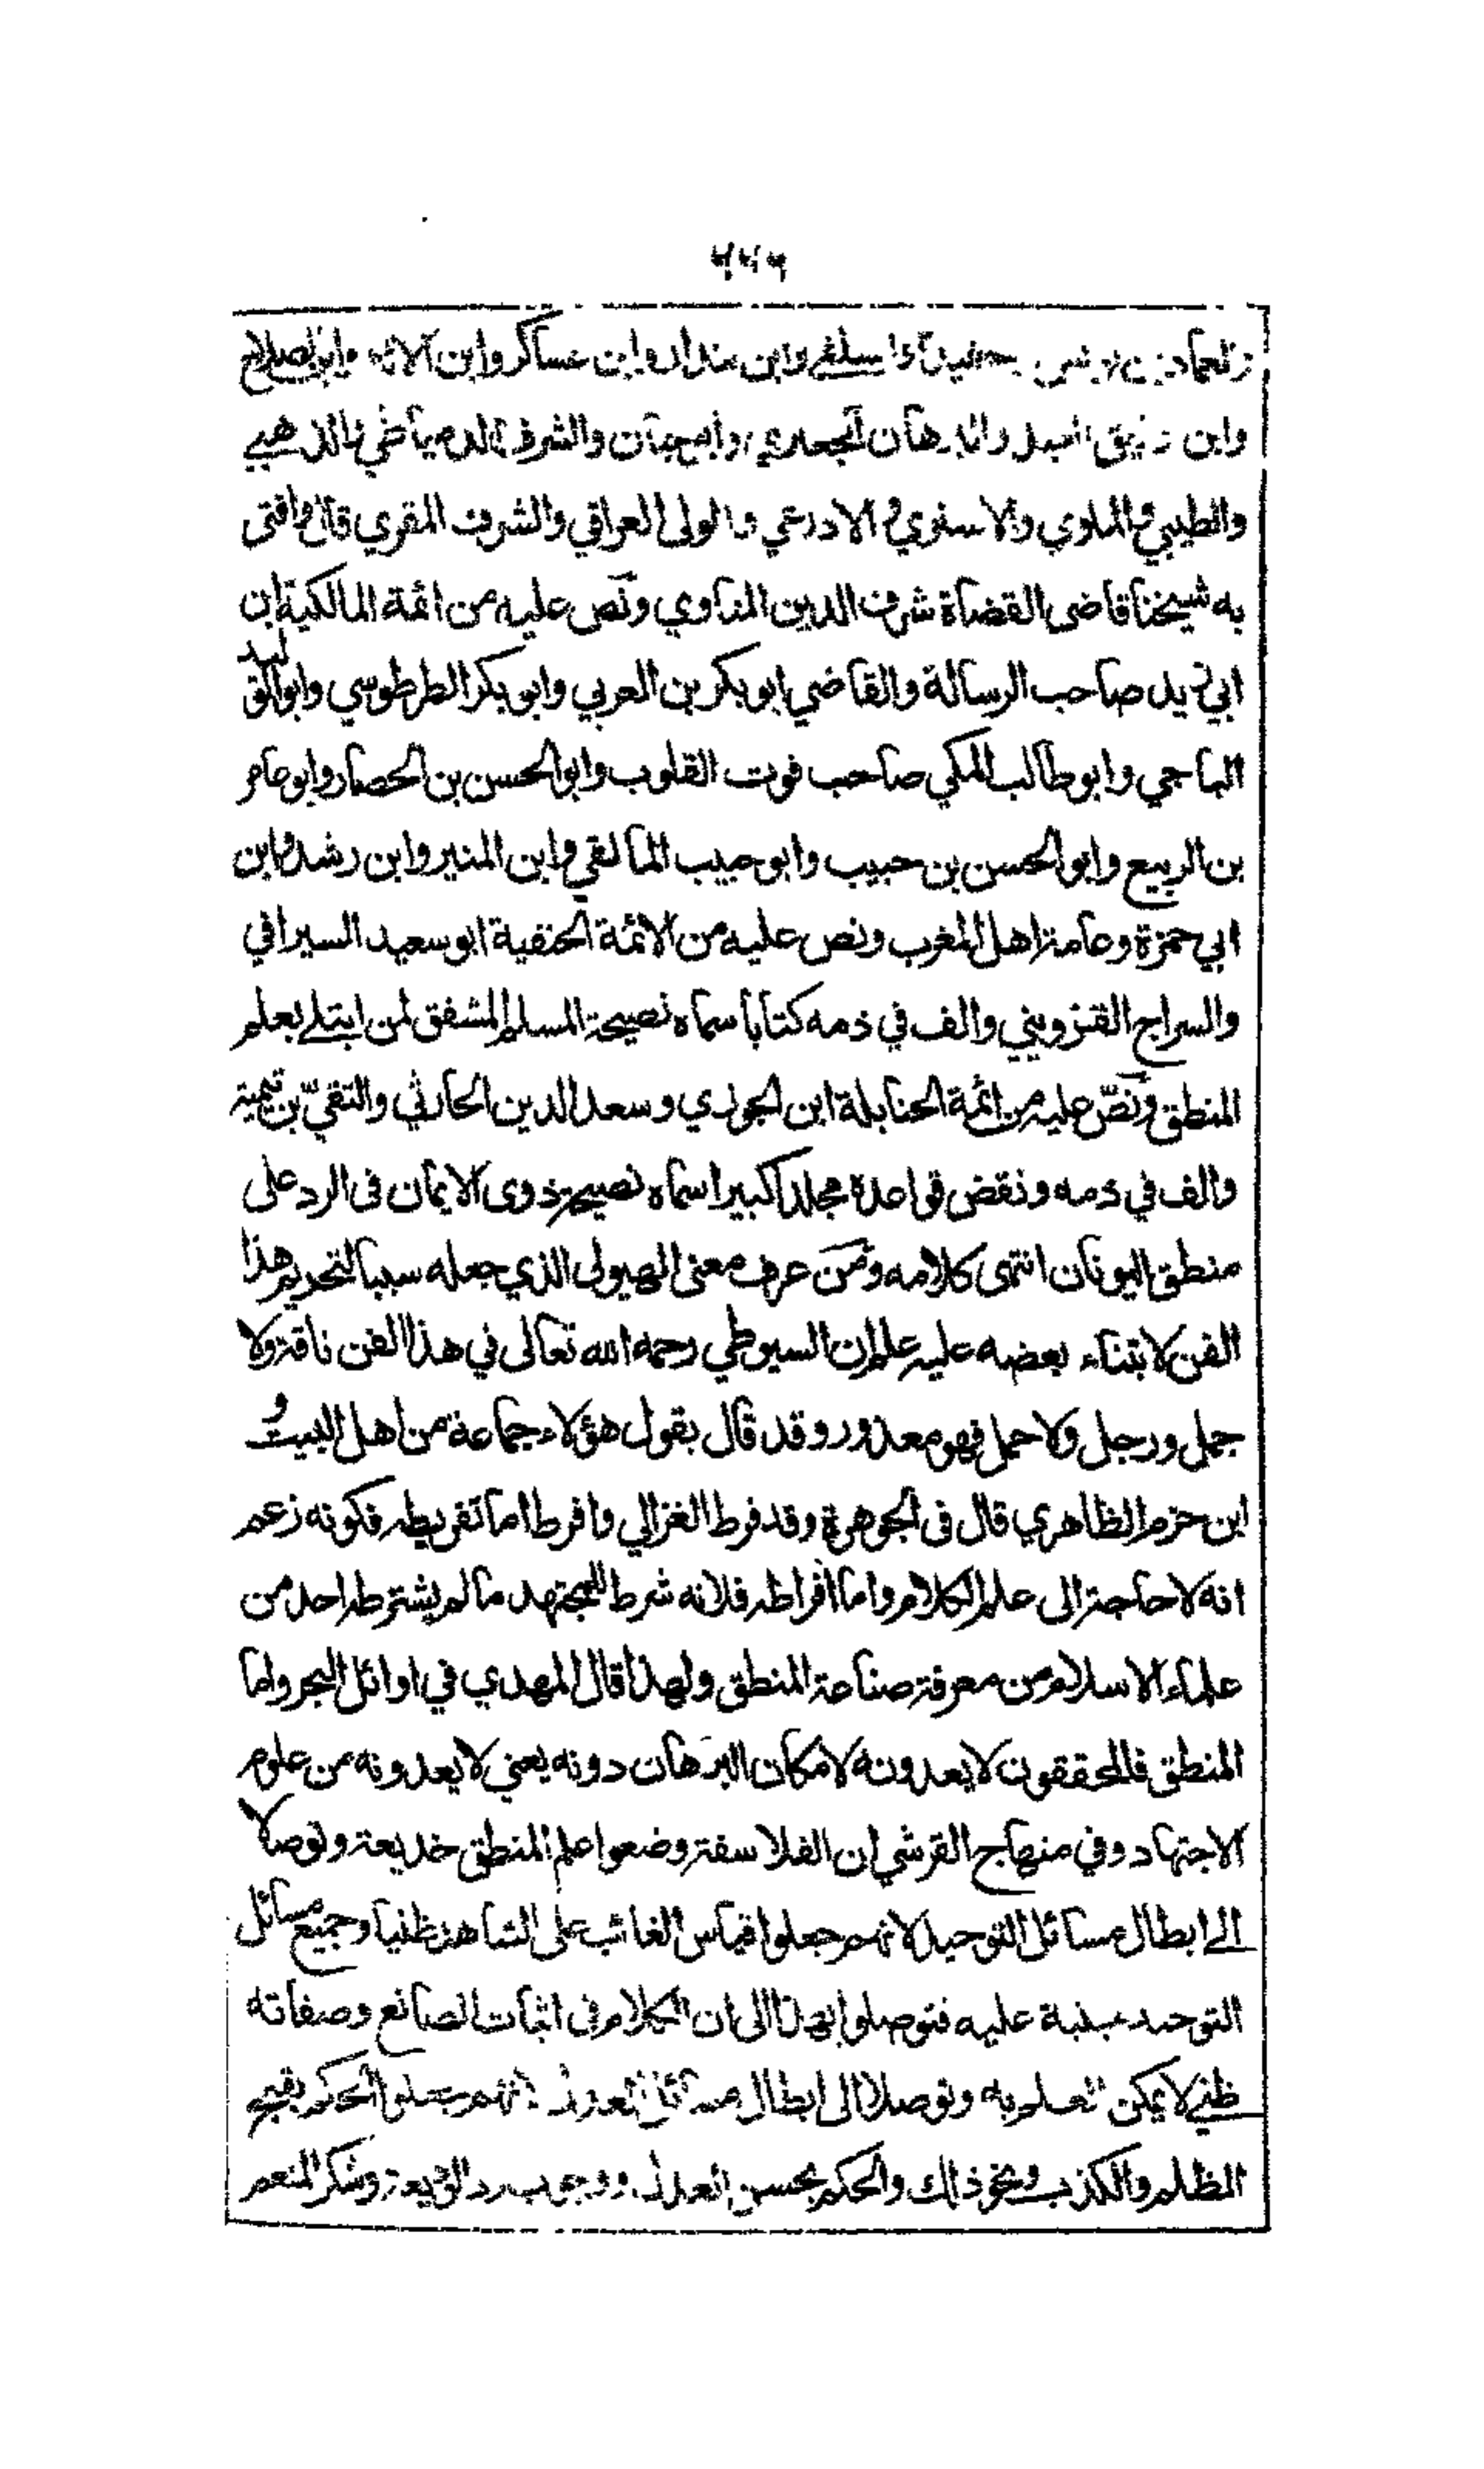 وابن عساكر وابن الاثير وابن الصلاح
وابن دقيق العيد والبرهان الجعبري وابو حيان والشرف الدمياطي والذهبي
والطيبي والملوي والاسنوي والاذرعي والولي العراقي والشرف المقري قال وافتى
به شيخنا قاضى القضاة شرف الدين المناوي ونص عليه من ائمة المالكية ابن
ابي زيد صاحب الرسالة والقاضي ابو بكر بن العربي وابو بكر الطرطوسي وابو الوليد
الباجي وابو طالب المكي صاحب قوت القلوب وابو الحسن بن الحصار وابو عامر
بن الربيع وابو الحسن بن حبيب وابو حبيب المالقي وابن المنير وابن رشد وابن
ابي حمزة وعامة اهل المغرب ونص عليه من الائمة الحنفية ابو سعيد السيرافي
والسراج القزويني والف في ذمه كتابا سماه نصيحة المسلم المشفق لمن ابتلى بعلم
المنطق ونصّ عليه من ائمة الحنابلة ابن الجوزي وسعد الدين الحارثي والتقيّ بن تيمية
والف في ذمه ونقض قواعده مجلدا كبيرا سماه نصيحة ذوى الايمان فى الرد على
منطق اليونان انتهى كلامه ومَن عرف معنى الهيولى الذي جعله سببا لتحريم هذا
الفن لابتناء بعضه عليه علم ان السيوطي رحمه الله تعالى في هذا الفن ناقة ولا
جمل ورجل ولا حمل فهو معذور وقد قال بقول هؤلاء جماعة من اهل البيت و
ابن حزم الظاهري قال فى الجوهرة وقد فرط الغزالي وافرط اما تفريطه فكونه زعم
انه لا حاجة الى علم الكلام واما افراطه فلانه شرط للمجتهد ما لم يشترطه احد من
علماء الاسلام من معرفة صناعة المنطق ولهذا قال المهدي في اوائل البحر واما
المنطق فالمحققون لا يعدونه لامكان البرهان دونه يعني لا يعدونه من علوم
الاجتهاد وفي منهاج القرشي ان الفلاسفة وضعوا علم المنطق خديعة وتوصلا
الى ابطال مسائل التوحيد لانهم جعلوا قياس الغائب على الشاهد ظنيا وجميع مسائل
التوحيد مبنية عليه فتوصلوا بهذا الى ان الكلام فى اثبات الصانع وصفاته
ظني لا يمكن العلم به وتوصلا الى ابطال مسائل العدل لانهم جعلوا الحكم بقبح
الظلم والكذب ونحو ذلك والحكم بحسن العدل ووجوب رد الوديعة وشكر المنعم